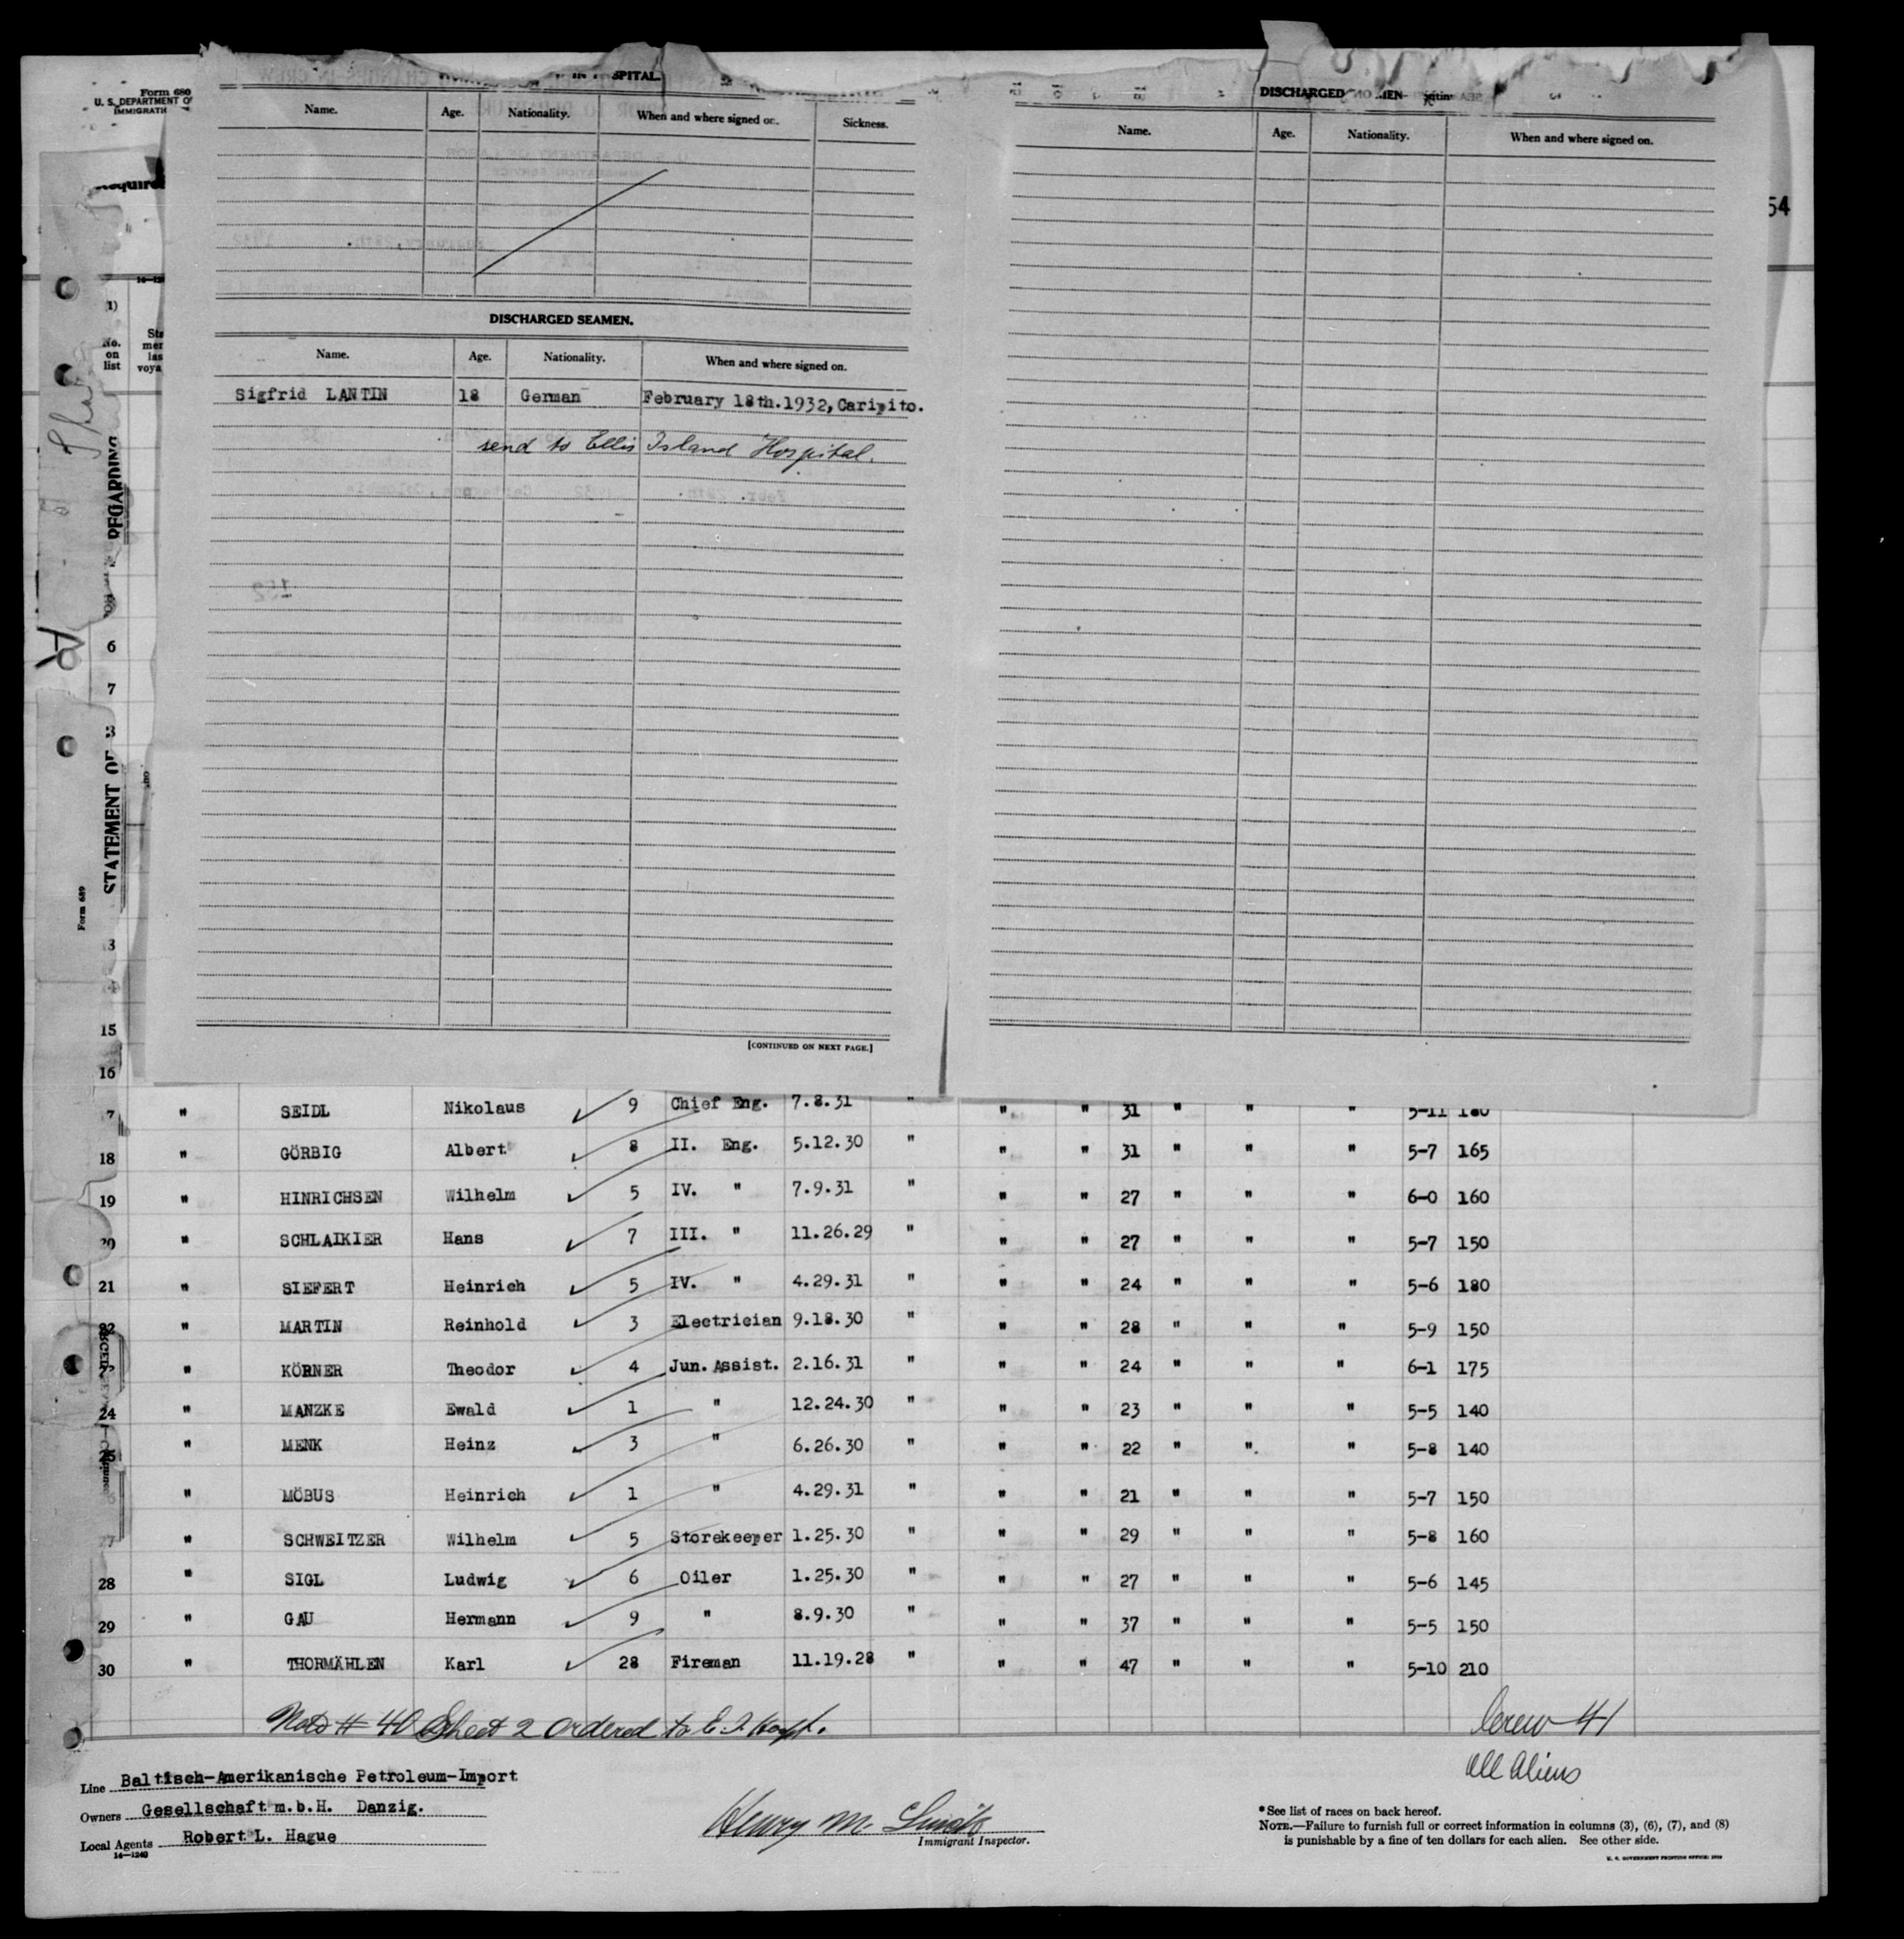 Form 680
U. S. DEPARTMENT OF
IMMIGRATI
54
Name. Age. Nationality. When and where signed on. Sickness.
DISCHARGED SEAMEN.
Name. Age. Nationality. When and where signed on.
Sigfrid LANTIN 18 German February 18th.1932, Caripito.
send to Ellis Island Hospital.
[CONTINUED ON NEXT PAGE.]
DISCHARGED
Name. Age. Nationality. When and where signed on.
No.
on
list
REGARDING
STATEMENT OF
Form 689
6
7
15
16
" SEIDL Nikolaus 9 Chief Eng. 7.8.31 " " " 31 " " " 5-11 180
18 " GÖRBIG Albert 8 II. Eng. 5.12.30 " " " 31 " " " 5-7 165
19 " HINRICHSEN Wilhelm 5 IV. " 7.9.31 " " " 27 " " " 6-0 160
20 " SCHLAIKIER Hans 7 III. " 11.26.29 " " " 27 " " " 5-7 150
21 " SIEFERT Heinrich 5 IV. " 4.29.31 " " " 24 " " " 5-6 180
" MARTIN Reinhold 3 Electrician 9.18.30 " " " 28 " " " 5-9 150
" KÖRNER Theodor 4 Jun. Assist. 2.16.31 " " " 24 " " " 6-1 175
24 " MANZKE Ewald 1 " 12.24.30 " " " 23 " " " 5-5 140
" MENK Heinz 3 " 6.26.30 " " " 22 " " " 5-8 140
" MÖBUS Heinrich 1 " 4.29.31 " " " 21 " " " 5-7 150
" SCHWEITZER Wilhelm 5 Storekeeper 1.25.30 " " " 29 " " " 5-8 160
28 " SIGL Ludwig 6 Oiler 1.25.30 " " " 27 " " " 5-6 145
29 " GAU Hermann 9 " 8.9.30 " " " 37 " " " 5-5 150
30 " THORMÄHLEN Karl 28 Fireman 11.19.28 " " " 47 " " " 5-10 210
Note # 40 Sheet 2 ordered to E. I. Hospt.
Crew 41
All Aliens
Line Baltisch-Amerikanische Petroleum-Import
Owners Gesellschaft m.b.H. Danzig.
Local Agents Robert L. Hague
14—1240
Henry M.
Immigrant Inspector.
* See list of races on back hereof.
NOTE.—Failure to furnish full or correct information in columns (3), (6), (7), and (8)
is punishable by a fine of ten dollars for each alien. See other side.